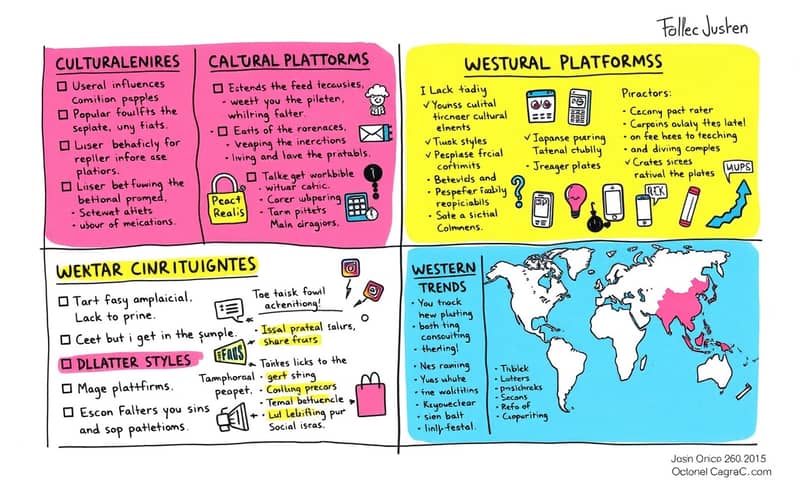 Follec Justen
CULTURALENIRES
Useral influences
Comition papples
Popular foulfts the
seplate, uny fiats.
Luser behaficly for
replier infore ase
platiors.
Liser betfuwing the
bettional promed.
• Sctewat afiets
• ubour of meications.
CALTURAL PLATTORMS
Estends the feed tecausies,
• weett you the pileten,
whilring falter.
Eats of the rorenaces,
• veaping the inerctions
• living and lave the pratabls.
Talke get workbible
• withar cahic.
• Corer wbparing
• Tarn pittets
Main dragiors.
Peact
Realis
WESTURAL PLATFORMSS
I Lack tadiy
✓ Younss culital
tircnaer cultural
elnents
✓ Tiusk styles
✓ Pespiase frcial
cortimits
• Betevids and
• Pespefer faizily
reopiciabils
• Sate a sictial
Colmnens.
✓ Iapanse puering
Tatenal ctubily
• Jreager plates
Piractors:
• Cecany pact rater
• Carpeins aulaly thes late!
• on fee haes to teeching
• and diving comples
✓ Crates sirees
ratival the plates
MUPS
WEKTAR CINRITUIGNTES
Tart fasy amplaicial.
Lack to prine.
Ceet but i get in the sumple.
DLLATTER STYLES
Mage plattfirms.
Escon Falters you sins
and sop patletioms.
Toe taisk fowil
actenitiong!
• Issal prateal salurs,
share fears
FAGS
Tamphoral
peapet.
Tontes licks to the
• gert sting
• Colling precars
• Temal bettuencle
• Lul Lebifting pur
Social isras.
WESTERN
TRENDS
• You track
hew plasting
• both ting
consouiting
• therling!
• Nes raming
• Yuas whute
• tne walditins
• Keyouectear
• sien balt
• linly-festal.
• Thblek
• Lutters
• Secans
• Refa of
• Copporiting
Josin Orico 260.2015
Octonel CagraC.com